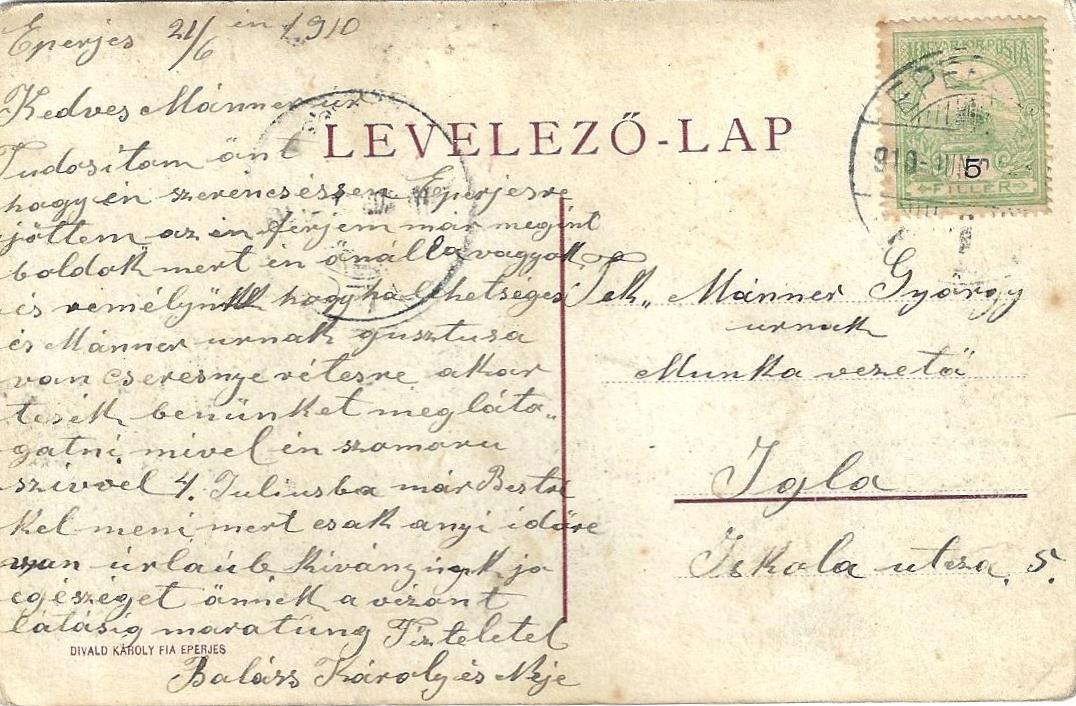 Eperjes 21/6 én 1910
Kedves Mánner úr
Tudositom önt
hogy én szerencséssen Eperjesre
jöttem az én férjem már megint
boldok mert én önálla vagyok
és reméljünk hogy ha lehetseges
és Mánner urnak gusztusa
van cseresnye rétesre akar
tesik benünket megláto„
gatni mivel én szomoru
szivvel 4. Juliusba már
kel meni mert csak anyi időre
van úrlaúb kiványúgk jo
egészéget önnek a vizont
látásig maratúng Tizteletel
Balázs Károly és Neje
DIVALD KÁROLY FIA EPERJES
LEVELEZŐ-LAP
MAGYAR KIR. POSTA
5
FILLER
910 JUN
Tek„ Mánner György
urnak
Munka vezető
Igla
Iskola utsza. 5.